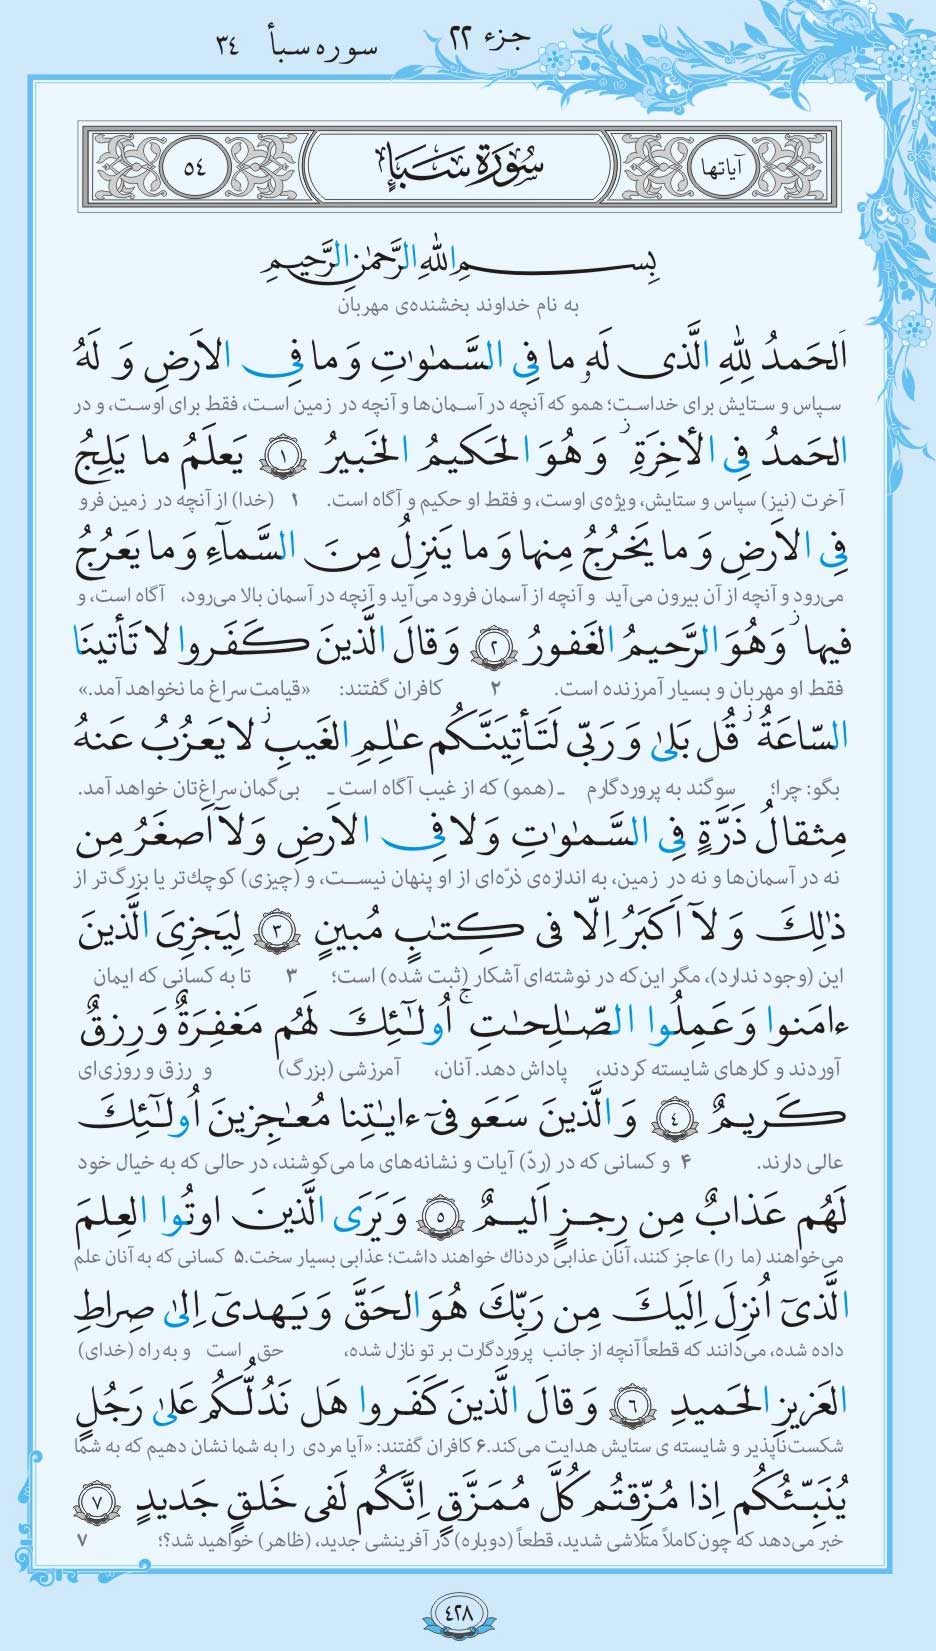 جزء ٢٢
سوره سبأ ٣٤
آیاتها
سُورَة سَبَإٍ
٥٤
بِسمِ اللهِ الرَّحمٰنِ الرَّحیمِ
به نام خداوند بخشنده‌ی مهربان
اَلحَمدُ لِلّٰهِ الَّذی لَهٗ ما فِی السَّمٰوٰتِ وَ ما فِی الاَرضِ وَ لَهُ
سپاس و ستایش برای خداست؛ همو که آنچه در آسمان‌ها و آنچه در زمین است، فقط برای اوست، و در
الحَمدُ فِی الأٰخِرَةِ ۚ وَ هُوَ الحَکیمُ الخَبیرُ ﴿١﴾ یَعلَمُ ما یَلِجُ
آخرت (نیز) سپاس و ستایش، ویژه‌ی اوست، و فقط او حکیم و آگاه است. ١ (خدا) از آنچه در زمین فرو
فِی الاَرضِ وَ ما یَخرُجُ مِنها وَ ما یَنزِلُ مِنَ السَّمآءِ وَ ما یَعرُجُ
می‌رود و آنچه از آن بیرون می‌آید و آنچه از آسمان فرود می‌آید و آنچه در آسمان بالا می‌رود، آگاه است، و
فیها ۚ وَ هُوَ الرَّحیمُ الغَفورُ ﴿٢﴾ وَ قالَ الَّذینَ کَفَروا لا تَأتینَا
فقط او مهربان و بسیار آمرزنده است. ٢ کافران گفتند: «قیامت سراغ ما نخواهد آمد.»
السّاعَةُ ۖ قُل بَلیٰ وَ رَبّی لَتَأتِیَنَّکُم عٰلِمِ الغَیبِ ۖ لا یَعزُبُ عَنهُ
بگو: چرا؛ سوگند به پروردگارم ـ (همو) که از غیب آگاه است ـ بی‌گمان سراغ‌تان خواهد آمد.
مِثقالُ ذَرَّةٍ فِی السَّمٰوٰتِ وَ لا فِی الاَرضِ وَ لآ اَصغَرُ مِن
نه در آسمان‌ها و نه در زمین، به اندازه‌ی ذرّه‌ای از او پنهان نیست، و (چیزی) کوچک‌تر یا بزرگ‌تر از
ذٰلِکَ وَ لآ اَکبَرُ اِلّا فی کِتٰبٍ مُبینٍ ﴿٣﴾ لِیَجزِیَ الَّذینَ
این (وجود ندارد)، مگر این‌که در نوشته‌ای آشکار (ثبت شده) است؛ ٣ تا به کسانی که ایمان
ءامَنوا وَ عَمِلُوا الصّٰلِحٰتِ ۚ اُولٰٓئِکَ لَهُم مَغفِرَةٌ وَ رِزقٌ
آوردند و کارهای شایسته کردند، پاداش دهد. آنان، آمرزشی (بزرگ) و رزق و روزی‌ای
کَریمٌ ﴿٤﴾ وَ الَّذینَ سَعَو فیٓ ءایٰتِنا مُعٰجِزینَ اُولٰٓئِکَ
عالی دارند. ۴ و کسانی که در (ردّ) آیات و نشانه‌های ما می‌کوشند، در حالی که به خیال خود
لَهُم عَذابٌ مِن رِجزٍ اَلیمٌ ﴿٥﴾ وَ یَرَی الَّذینَ اوتُوا العِلمَ
می‌خواهند (ما را) عاجز کنند، آنان عذابی دردناك خواهند داشت؛ عذابی بسیار سخت. ۵ کسانی که به آنان علم
الَّذیٓ اُنزِلَ اِلَیکَ مِن رَبِّکَ هُوَ الحَقَّ وَ یَهدیٓ اِلیٰ صِراطِ
داده شده، می‌دانند که قطعاً آنچه از جانب پروردگارت بر تو نازل شده، حق است و به راه (خدای)
العَزیزِ الحَمیدِ ﴿٦﴾ وَ قالَ الَّذینَ کَفَروا هَل نَدُلُّکُم عَلیٰ رَجُلٍ
شکست‌ناپذیر و شایسته ی ستایش هدایت می‌کند. ۶ کافران گفتند: «آیا مردی را به شما نشان دهیم که به شما
یُنَبِّئُکُم اِذا مُزِّقتُم کُلَّ مُمَزَّقٍ اِنَّکُم لَفی خَلقٍ جَدیدٍ ﴿٧﴾
خبر می‌دهد که چون کاملاً متلاشی شدید، قطعاً (دوباره) در آفرینشی جدید، (ظاهر) خواهید شد؟؛ ٧
٤٢٨